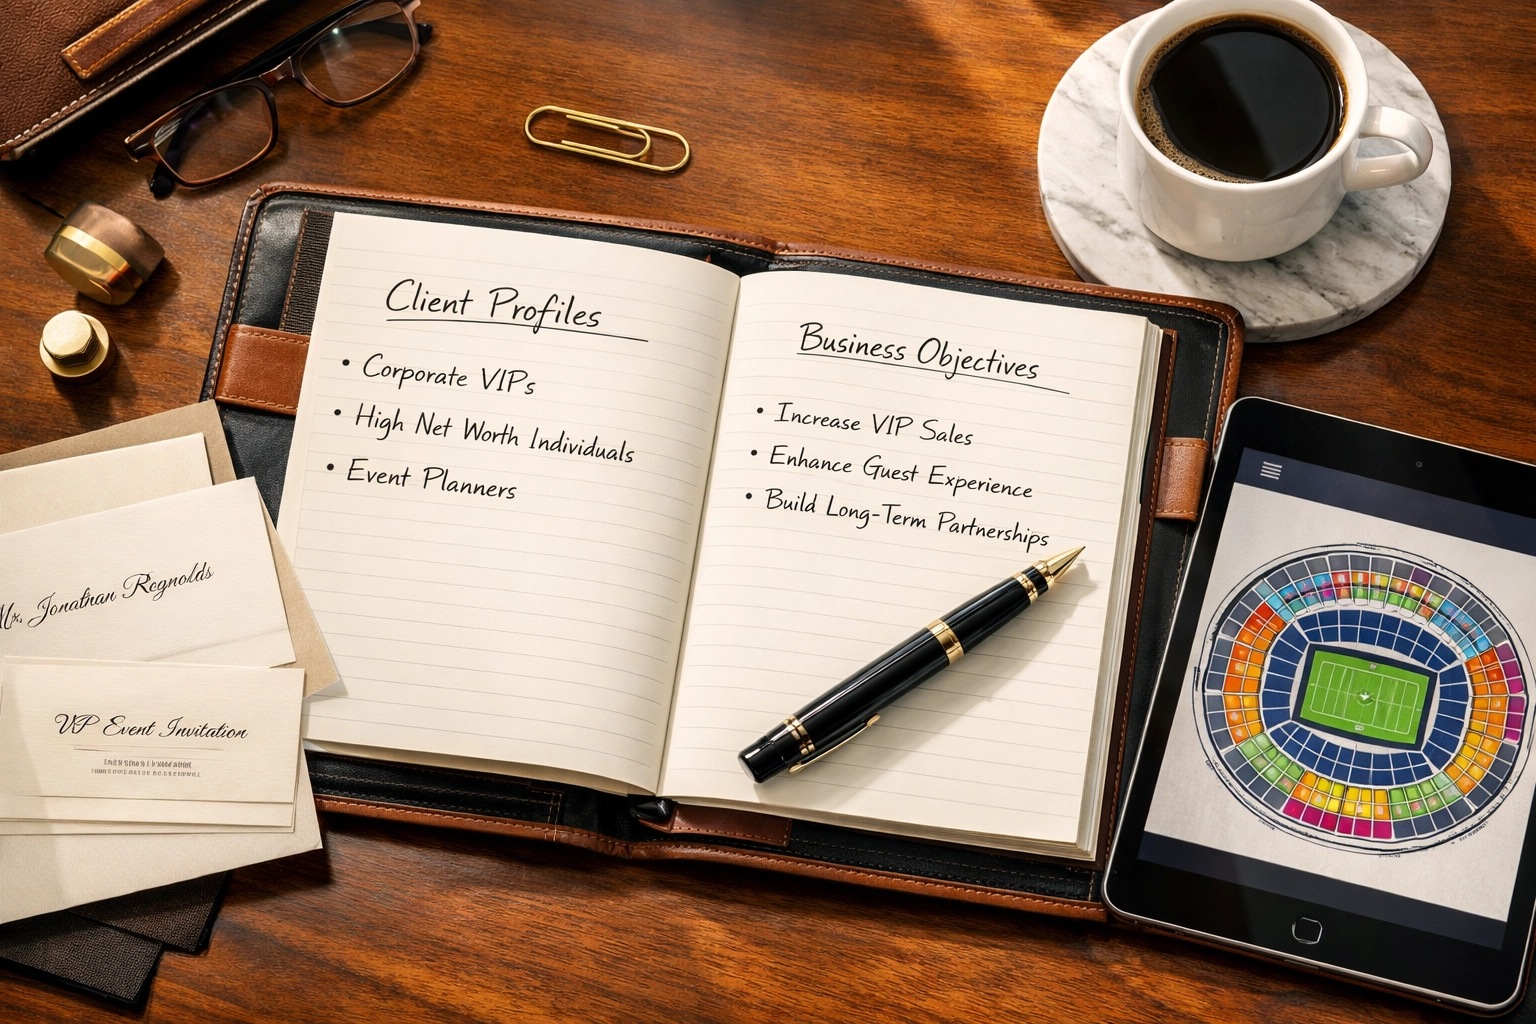 Client Profiles
• Corporate VIPs
• High Net Worth Individuals
• Event Planners
Business Objectives
• Increase VIP Sales
• Enhance Guest Experience
• Build Long-Term Partnerships
Mr. Jonathan Reynolds
VIP Event Invitation